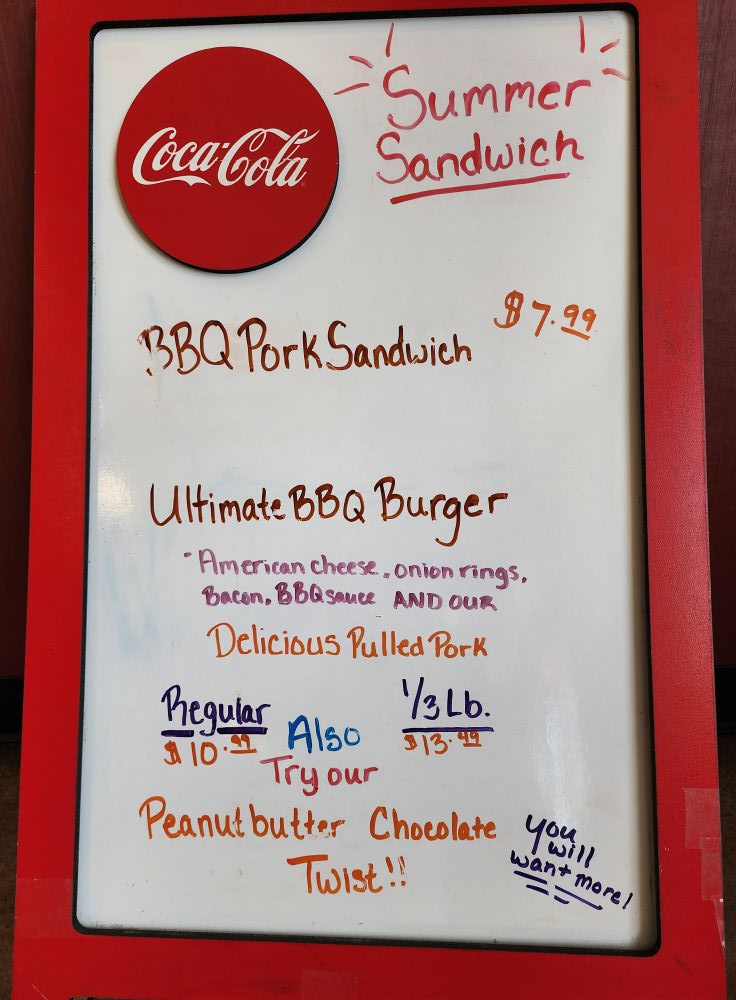 Coca-Cola
Summer
Sandwich
$7.99
BBQ Pork Sandwich
Ultimate BBQ Burger
American cheese, onion rings,
Bacon, BBQ sauce AND OUR
Delicious Pulled Pork
Regular 1/3 Lb.
$10.99 Also $13.99
Try our
Peanut butter Chocolate
Twist!!
you
will
want more!